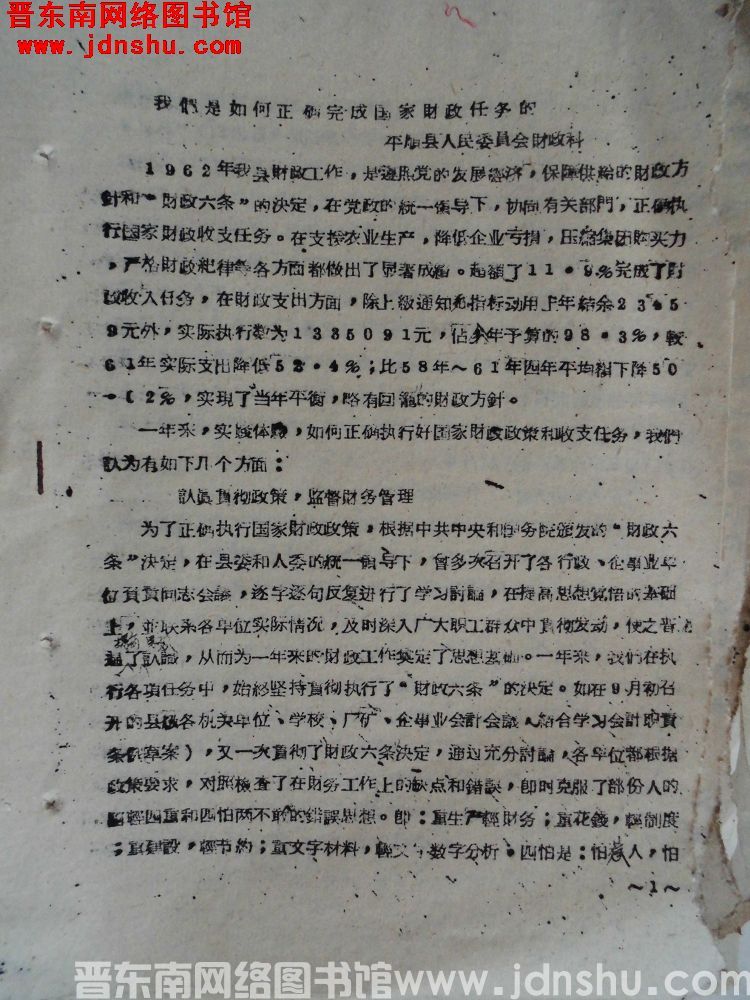 晋东南网络图书馆
www.jdnshu.com
我們是如何正确完成国家財政任务的
平順县人民委員会財政科
1962年我县財政工作，是遵照党的发展經济，保障供給的財政方
針和“財政六条”的决定，在党政的統一領导下，协同有关部門，正确执
行国家財政收支任务。在支援农业生产，降低企业亏损，压縮集团购买力
，严格財政紀律等各方面都做出了显著成績。超額了11·9％完成了財
政收入任务，在財政支出方面，除上級通知 指标动用上年結余2345
9元外，实际执行数为1385091元，佔 年予算的98·3％，較
61年实际支出降低52·4％；比58年～61年四年平均 下降50
· 2％，实現了当年平衡，略有回籠的財政方針。
一年来，实践体驗，如何正确执行好国家財政政策和收支任务，我們
認为有如下几个方面：
認眞貫彻政策，监督財务管理
为了正确执行国家財政政策，根据中共中央和国务院颁发的“財政六
条”决定，在县委和人委的統一領导下，曾多次召开了各行政、企事业单
位負責同志会議，逐字逐句反复进行了学习討論，在提高思想觉悟的基础
上，並联系各单位实际情况，及时深入广大职工群众中貫彻发动，使之普
遍了認識，从而为一年来的財政工作奠定了思想基础。一年来，我們在执
行各項任务中，始終坚持貫彻执行了“財政六条”的决定。如在9月初召
开的县級各机关单位、学校、厂矿、企事业会計会議（結合学习会計职責
条例草案），又一次貫彻了財政六条决定，通过充分討論，各单位都根据
政策要求，对照檢查了在財务工作上的缺点和錯誤，卽时克服了部份人的
四輕四重和四怕两不敢的錯誤思想。卽：重生产輕財务；重花錢，輕制度
；重建設，輕节約；重文字材料，輕 数字分析。四怕是：怕惹人，怕
～1～
晋东南网络图书馆www.jdnshu.com